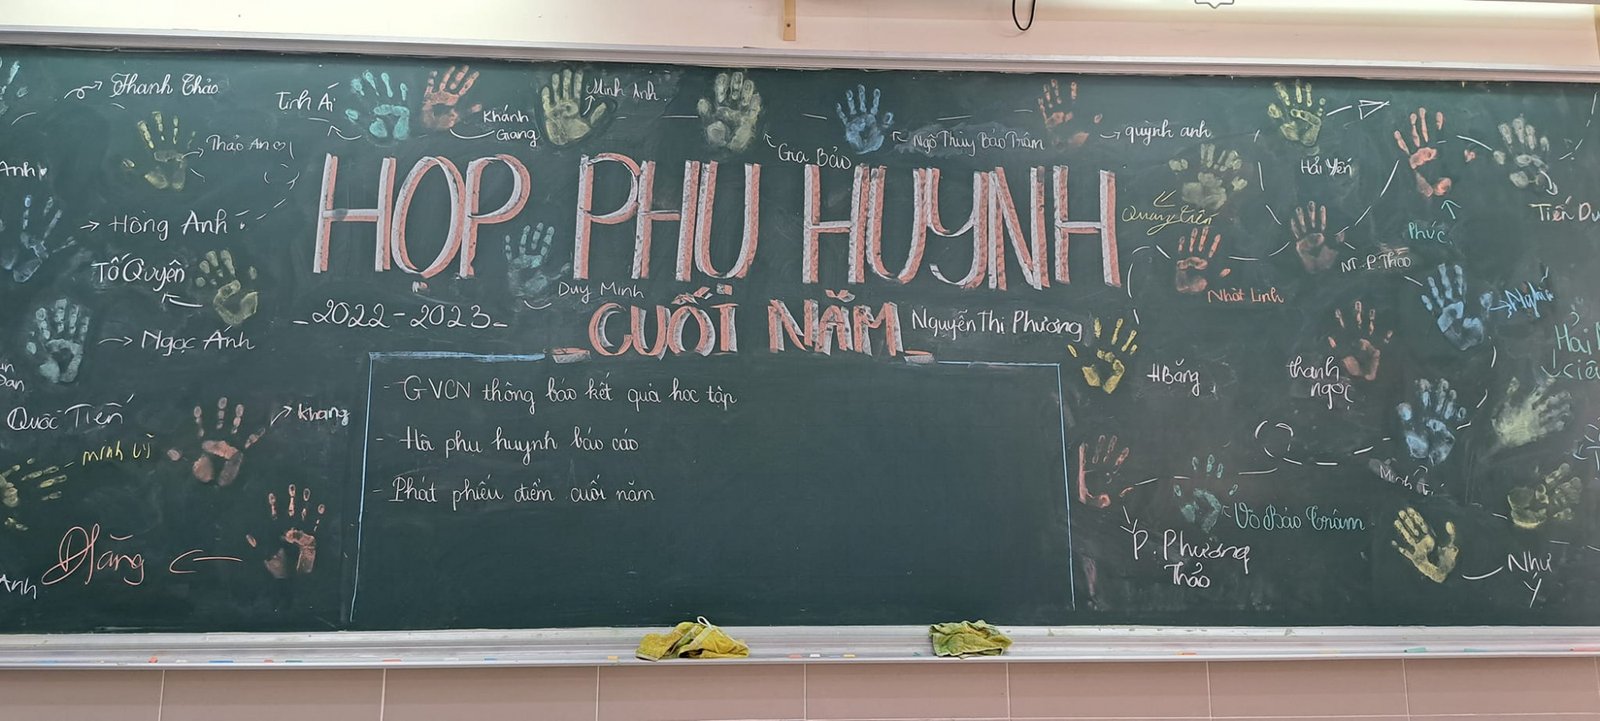 Thanh Thảo
Tinh Ái
Khánh
Giang
Minh Anh
Gia Bảo
Ngô Thùy Bảo Trâm
quỳnh anh
Hải Yến
Thảo An
Anh
Hồng Anh
Tố Quyên
Ngọc Ánh
HỌP PHỤ HUYNH
Duy Minh
_2022-2023_
CUỐI NĂM
Nguyễn Thị Phương
Quang Tiến
Nhật Linh
NT. P. Thảo
Phúc
Tiến Du
- GVCN thông báo kết quả học tập
- Hội phụ huynh báo cáo
- Phát phiếu điểm cuối năm
Quốc Tiến
Khang
Hằng
Anh
H Băng
thanh
ngọc
P. Phương
Thảo
Võ Bảo Trâm
Như
Ý